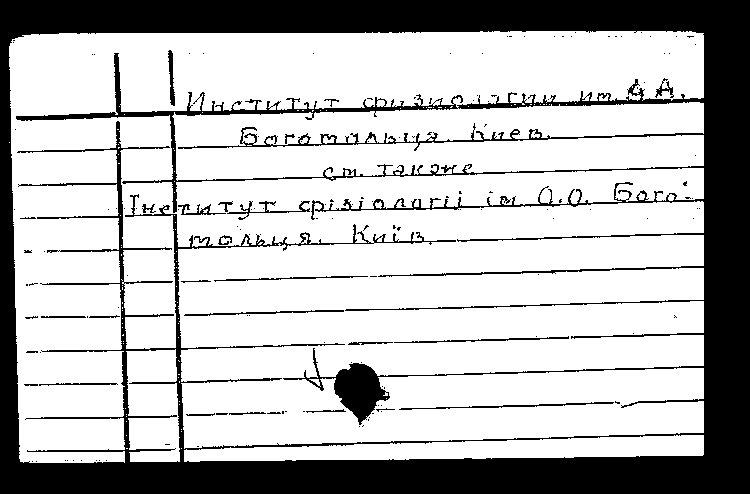 Институт физиологии им. А.А.
Богомольца. Киев.
см. также
Інститут фізіологіі ім О.О. Бого-
мольця. Київ.